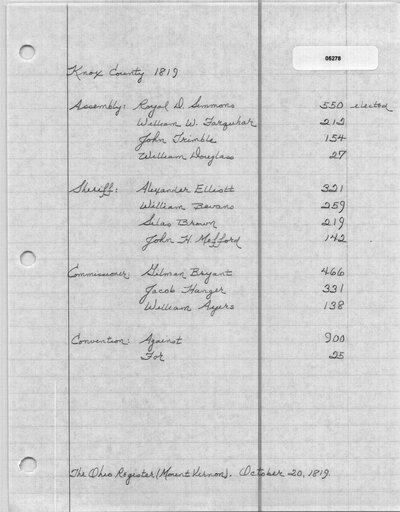 06278
Knox County 1819
Assembly: Royal D. Simmons 550 elected
William W. Farquhar 212
John Trimble 154
William Douglass 27
Sheriff: Alexander Elliott 321
William Bevans 259
Silas Brown 219
John H. Mefford 142
Commissioner: Gilman Bryant 466
Jacob Hanger 331
William Ayers 138
Convention: Against 900
For 25
The Ohio Register (Mount Vernon). October 20, 1819.